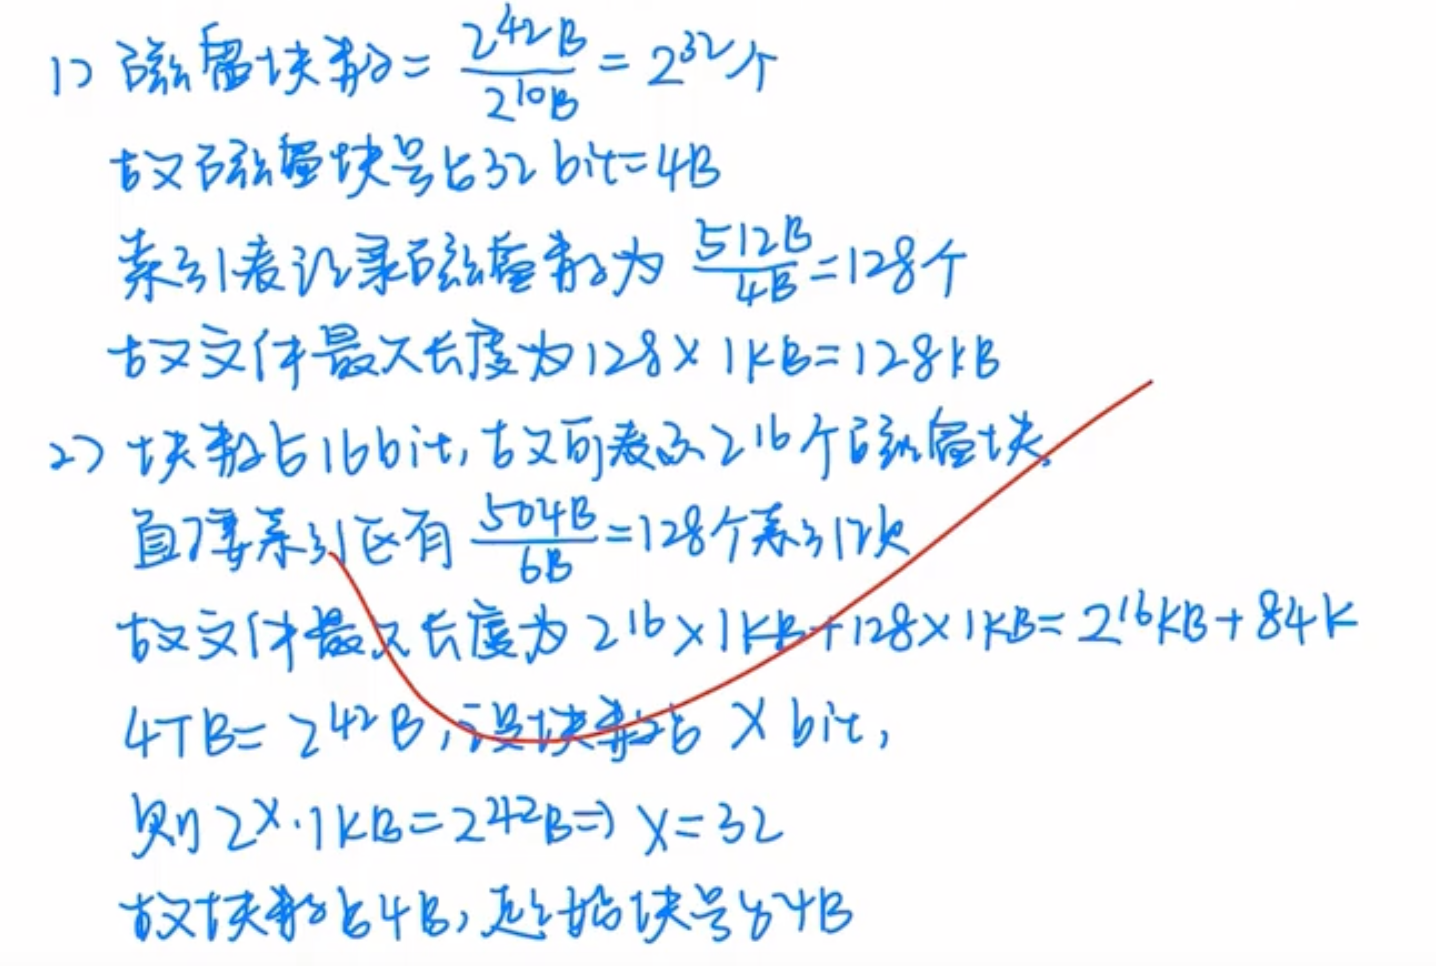 1) 磁盘块数= 2^42B / 2^10B = 2^32个
故磁盘块号占32bit=4B
索引表记录磁盘数为 512B / 4B = 128个
故文件最大长度为128×1KB=128KB
2) 块数占16bit,故可表示2^16个磁盘块,
直接索引区有 504B / 6B = 128个索引块
故文件最大长度为2^16×1KB+128×1KB=2^16KB+84K
4TB=2^42B,设块数占 X bit,
则2^X·1KB=2^42B⇒X=32
故块数占4B,起始块号占4B